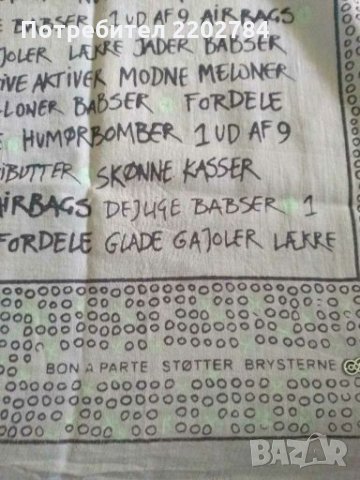 BABSER 1 UD AF 9 AIRBAGS
Потребител 2202784
JOLER LÆKRE JADER BABSER
IVE AKTIVER MODNE MELONER
LONER BABSER FORDELE
E HUMØRBOMBER 1 UD AF 9
IBUTTER SKØNNE KASSER
AIRBAGS DEJLIGE BABSER 1
FORDELE GLADE GAJOLER LÆKRE
BON A PARTE STØTTER BRYSTERNE
BAZAR